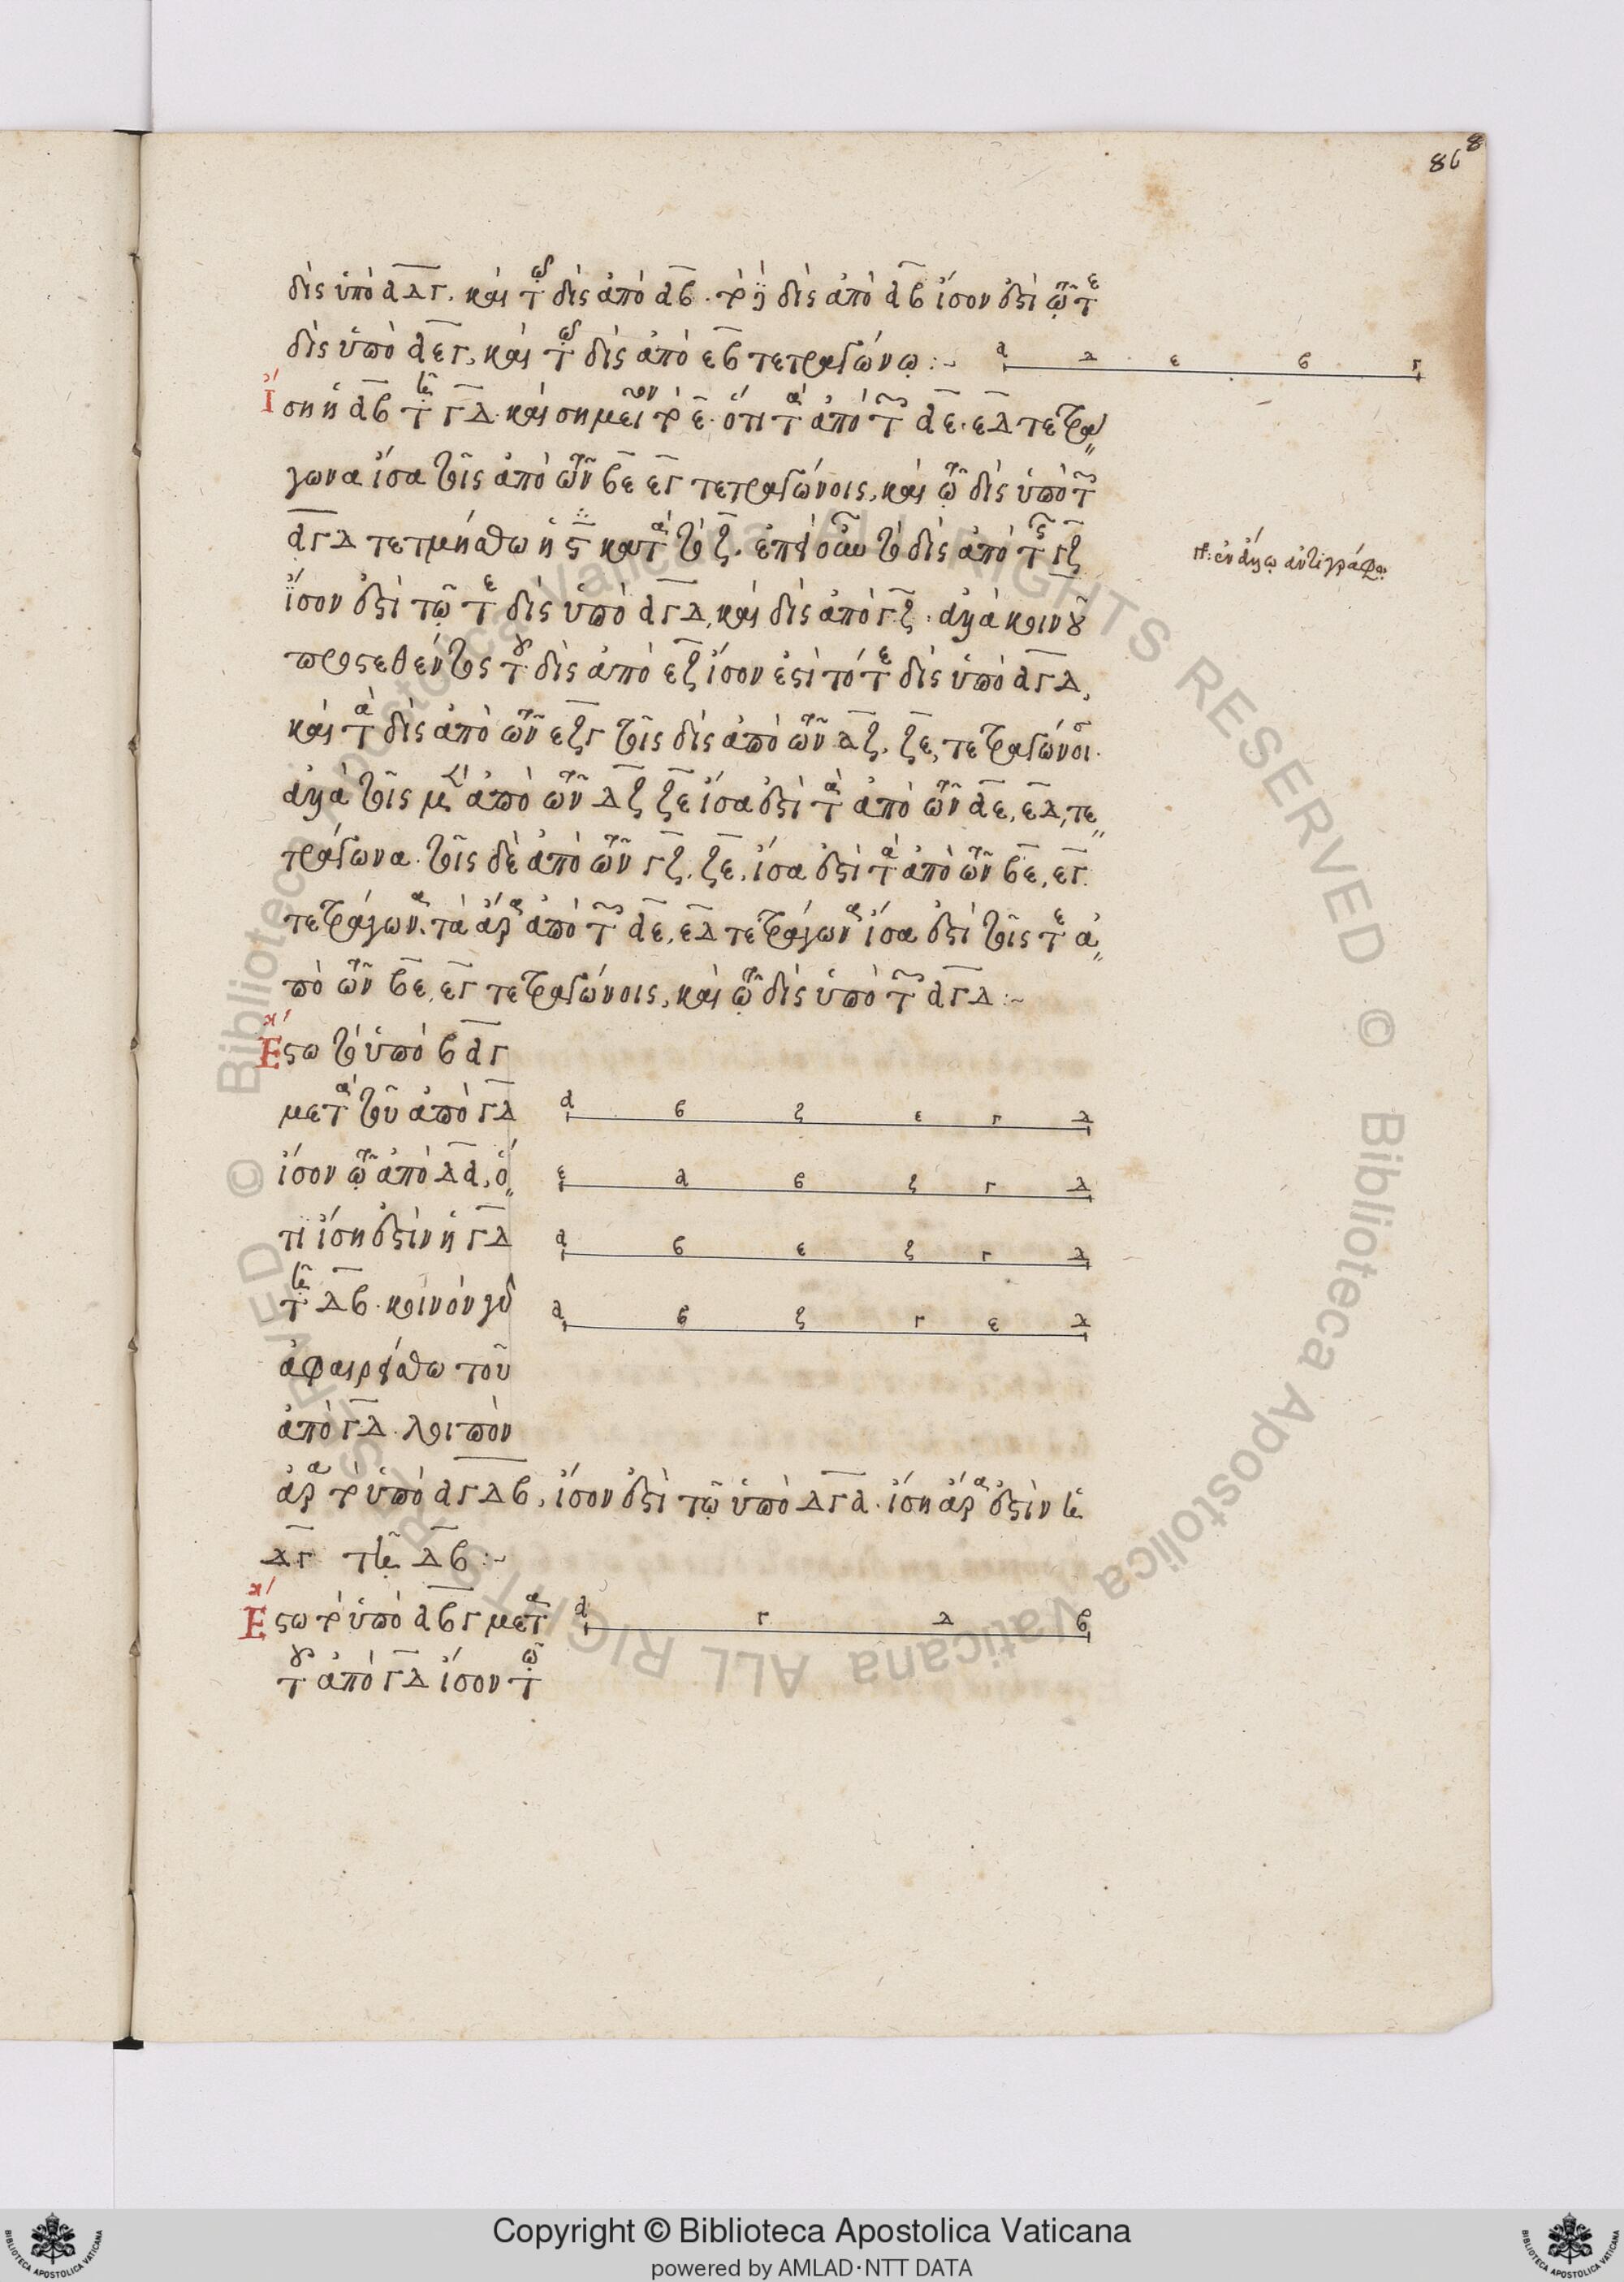 868
δὶς ὑπὸ αδγ, καὶ τῶ δὶς ἀπὸ αβ. τὸ δὲ δὶς ἀπὸ αβ ἴσον ἐστὶ τῷ τε
δὶς ὑπὸ αεγ, καὶ τῷ δὶς ἀπὸ εβ τετραγώνῳ :~
α δ ε β γ
Ἴση ἡ αβ τῇ γδ. καὶ σημεῖον τὸ ε. ὅτι τὰ ἀπὸ τῶν αε. εδ τετρα
γωνα ἴσα τοῖς ἀπὸ τῶν βε εγ τετραγώνοις, καὶ τῷ δὶς ὑπὸ τῶν
αγδ τετμήσθω ἡ κατὰ τὸ ζ. ἐπεὶ οὖν τὸ δὶς ἀπὸ τῆς γζ
ἐν ἄλλῳ ἀντιγράφῳ
ἴσον ἐστὶ τῷ τε δὶς ὑπὸ αγδ, καὶ δὶς ἀπὸ γζ. ἀλλὰ κοινοῦ
προςεθέντος τοῦ δὶς ἀπὸ εζ ἴσον ἐστὶ τό τε δὶς ὑπὸ αγδ,
καὶ τὰ δὶς ἀπὸ τῶν εζγ τοῖς δὶς ἀπὸ τῶν δζ, ζε, τετραγώνοις.
ἀλλὰ τοῖς μὲν ἀπὸ τῶν δζ ζε ἴσα ἐστὶ τὰ ἀπὸ τῶν αε, εδ, τε
τράγωνα. τοῖς δὲ ἀπὸ τῶν γζ, ζε, ἴσα ἐστὶ τὰ ἀπὸ τῶν βε, εγ
τετράγωνα. τὰ ἄρα ἀπὸ τῶν αε, εδ τετράγωνα ἴσα ἐστὶ τοῖς τε ἀ
πὸ τῶν βε, εγ τετραγώνοις, καὶ τῷ δὶς ὑπὸ τῶν αγδ :~
Ἔστω τὸ ὑπὸ βαγ
μετὰ τοῦ ἀπὸ γδ
α β ζ ε γ δ
ἴσον τῷ ἀπὸ δα, ὅ
ε α β ζ γ δ
τι ἴση ἐστὶν ἡ γδ
α β ε ζ γ δ
τῇ δβ. κοινὸν γὰρ
α β ζ γ ε δ
ἀφαιρήσθω τοῦ
ἀπὸ γδ. λοιπὸν
ἄρα τὸ ὑπὸ αγδβ, ἴσον ἐστὶ τῷ ὑπὸ δγα. ἴση ἄρα ἐστὶν ἡ
δγ τῇ δβ :~
Ἔστω τὸ ὑπὸ αβγ μετὰ
α γ δ β
τοῦ ἀπὸ γδ ἴσον τῷ
Copyright © Biblioteca Apostolica Vaticana
powered by AMLAD·NTT DATA